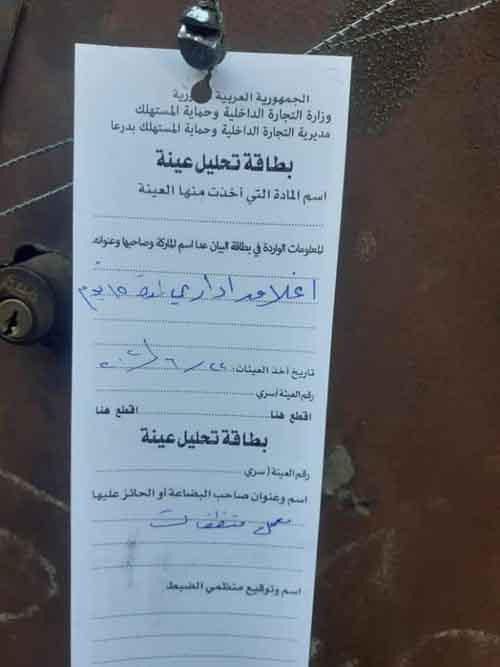 الجمهورية العربية
وزارة التجارة الداخلية وحماية المستهلك
مديرية التجارة الداخلية وحماية المستهلك بدرعا
بطاقة تحليل عينة
اسم المادة التي أخذت منها العينة
المعلومات الواردة في بطاقة البيان عدا اسم الماركة وصاحبها وعنوانه
اغلاق اداري لمدة ١٥ يوم
تاريخ أخذ العينات: ٢٤ / ٦ /
رقم العينة (سري)
اقطع هنا اقطع هنا
بطاقة تحليل عينة
رقم العينة (سري)
اسم وعنوان صاحب البضاعة أو الحائز عليها
معمل منظفات
اسم وتوقيع منظمي الضبط